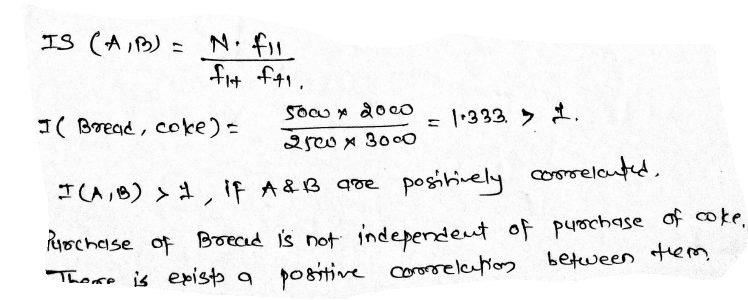 IS (A,B) = N. f11
f1+ f+1.
I( Bread, coke) = 5000 x 2000
2500 x 3000 = 1.333. > 1.
I(A,B) > 1, if A & B are positively correlated.
Purchase of Bread is not independent of purchase of coke.
There is exists a positive correlation between them.